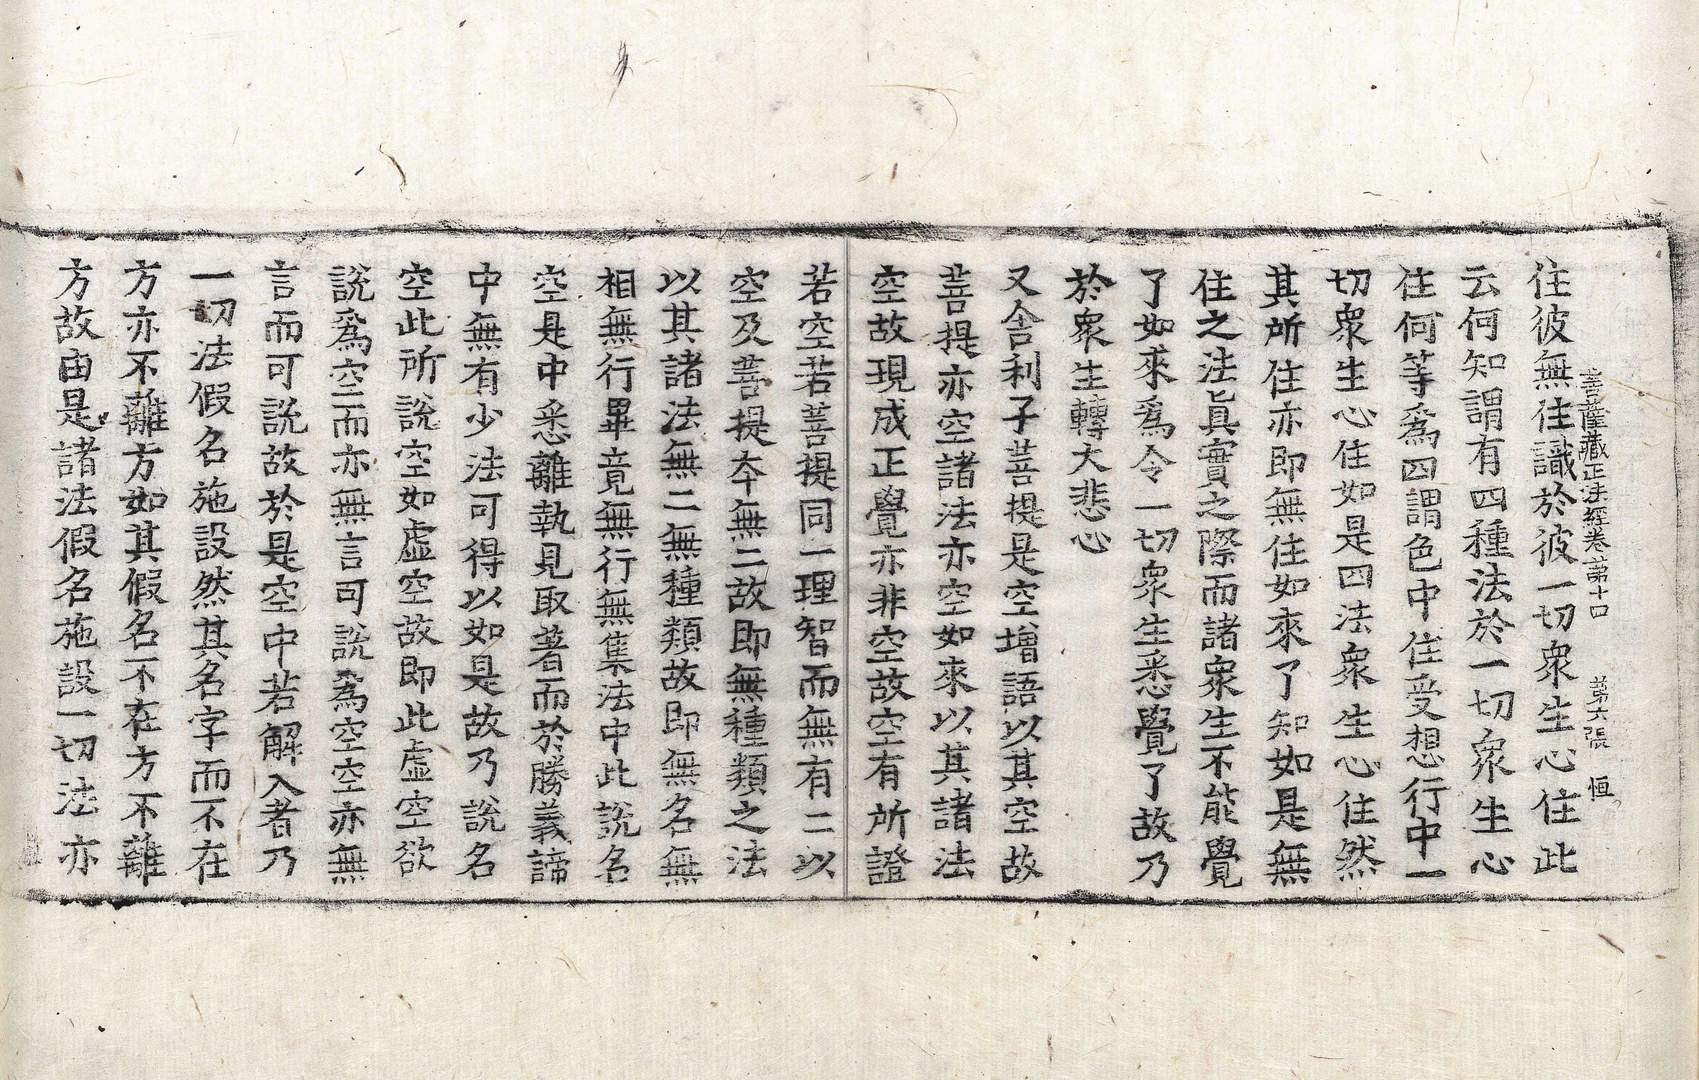 菩薩藏正法經卷第十口 第六張 恒
住彼無住識於彼一切衆生心住此
云何知謂有四種法於一切衆生心
住何等爲四謂色中住受想行中一
切衆生心住如是四法衆生心住然
其所住亦即無住如來了知如是無
住之法眞實之際而諸衆生不能覺
了如來爲令一切衆生悉覺了故乃
於衆生轉大悲心
又舍利子菩提是空增語以其空故
菩提亦空諸法亦空如來以其諸法
空故現成正覺亦非空故空有所證
若空若菩提同一理智而無有二以
空及菩提本無二故即無種類之法
以其諸法無二無種類故即無名無
相無行畢竟無行無集法中此說名
空是中悉離執見取著而於勝義諦
中無有少法可得以如是故乃說名
空此所說空如虛空故即此虛空欲
說爲空而亦無言可說爲空空亦無
言而可說故於是空中若解入者乃
一切法假名施設然其名字而不在
方亦不離方如其假名不在方不離
方故由是諸法假名施設一切法亦